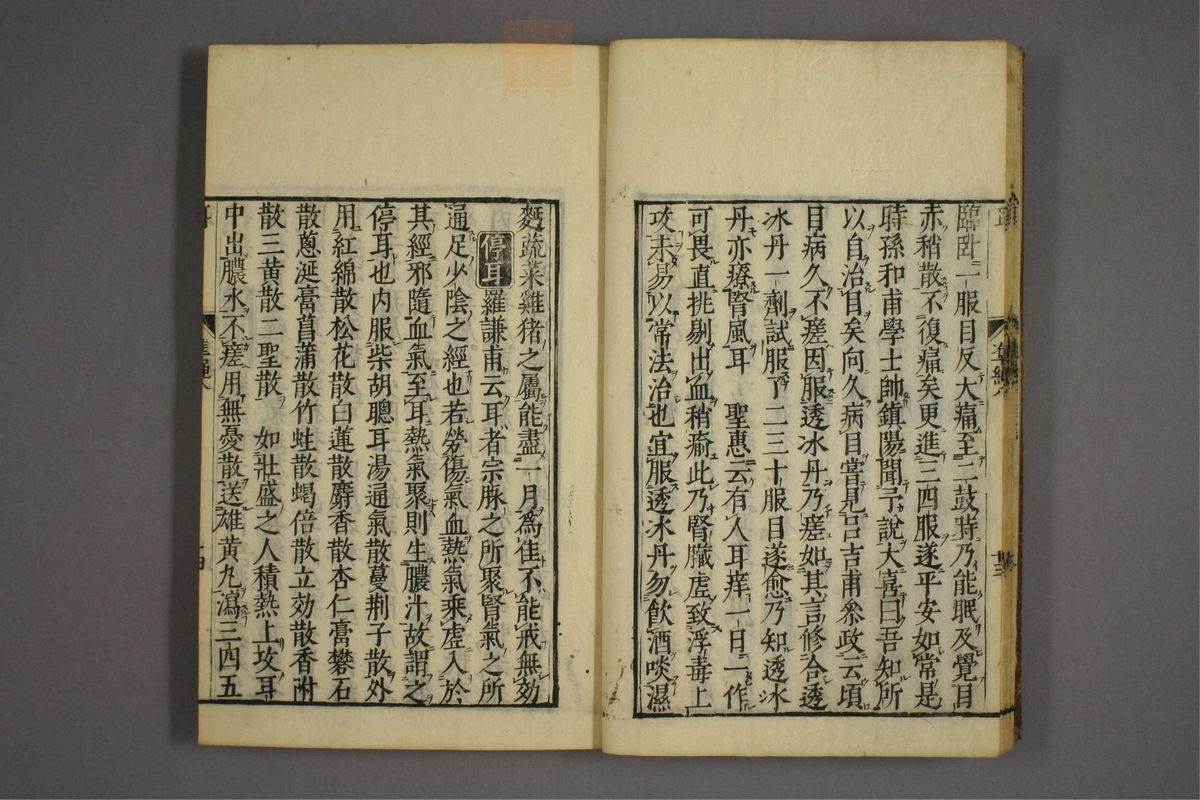 臨臥一服目反大痛至二鼓時乃能眠及覺目
赤稍散不復痛矣更進三四服遂平安如常是
時孫和甫學士帥鎮陽聞予說大喜曰吾知所
以自治目矣向久病目嘗見呂吉甫參政云頃
目病久不瘥因服透冰丹乃瘥如其言修合透
冰丹一劑試服了二三十服目遂愈乃知透冰
丹亦療腎風耳　聖惠云有人耳痒一日一作
可畏直挑剔出血稍瘉此乃腎臟虛致浮毒上
攻未易以常法治也宜服透冰丹勿飲酒啖濕
麪蔬菜雞猪之屬能盡一月為佳不能戒無効
停耳羅謙甫云耳者宗脉之所聚腎氣之所
通足少陰之經也若勞傷氣血熱氣乘虛入於
其經邪隨血氣至耳熱氣聚則生膿汁故謂之
停耳也内服柴胡聰耳湯通氣散蔓荆子散外
用紅綿散松花散白蓮散麝香散杏仁膏礬石
散葱涎膏菖蒲散竹蛀散蝎倍散立効散香附
散三黄散二聖散　如壯盛之人積熱上攻耳
中出膿水不瘥用無憂散送雄黄丸瀉三四五